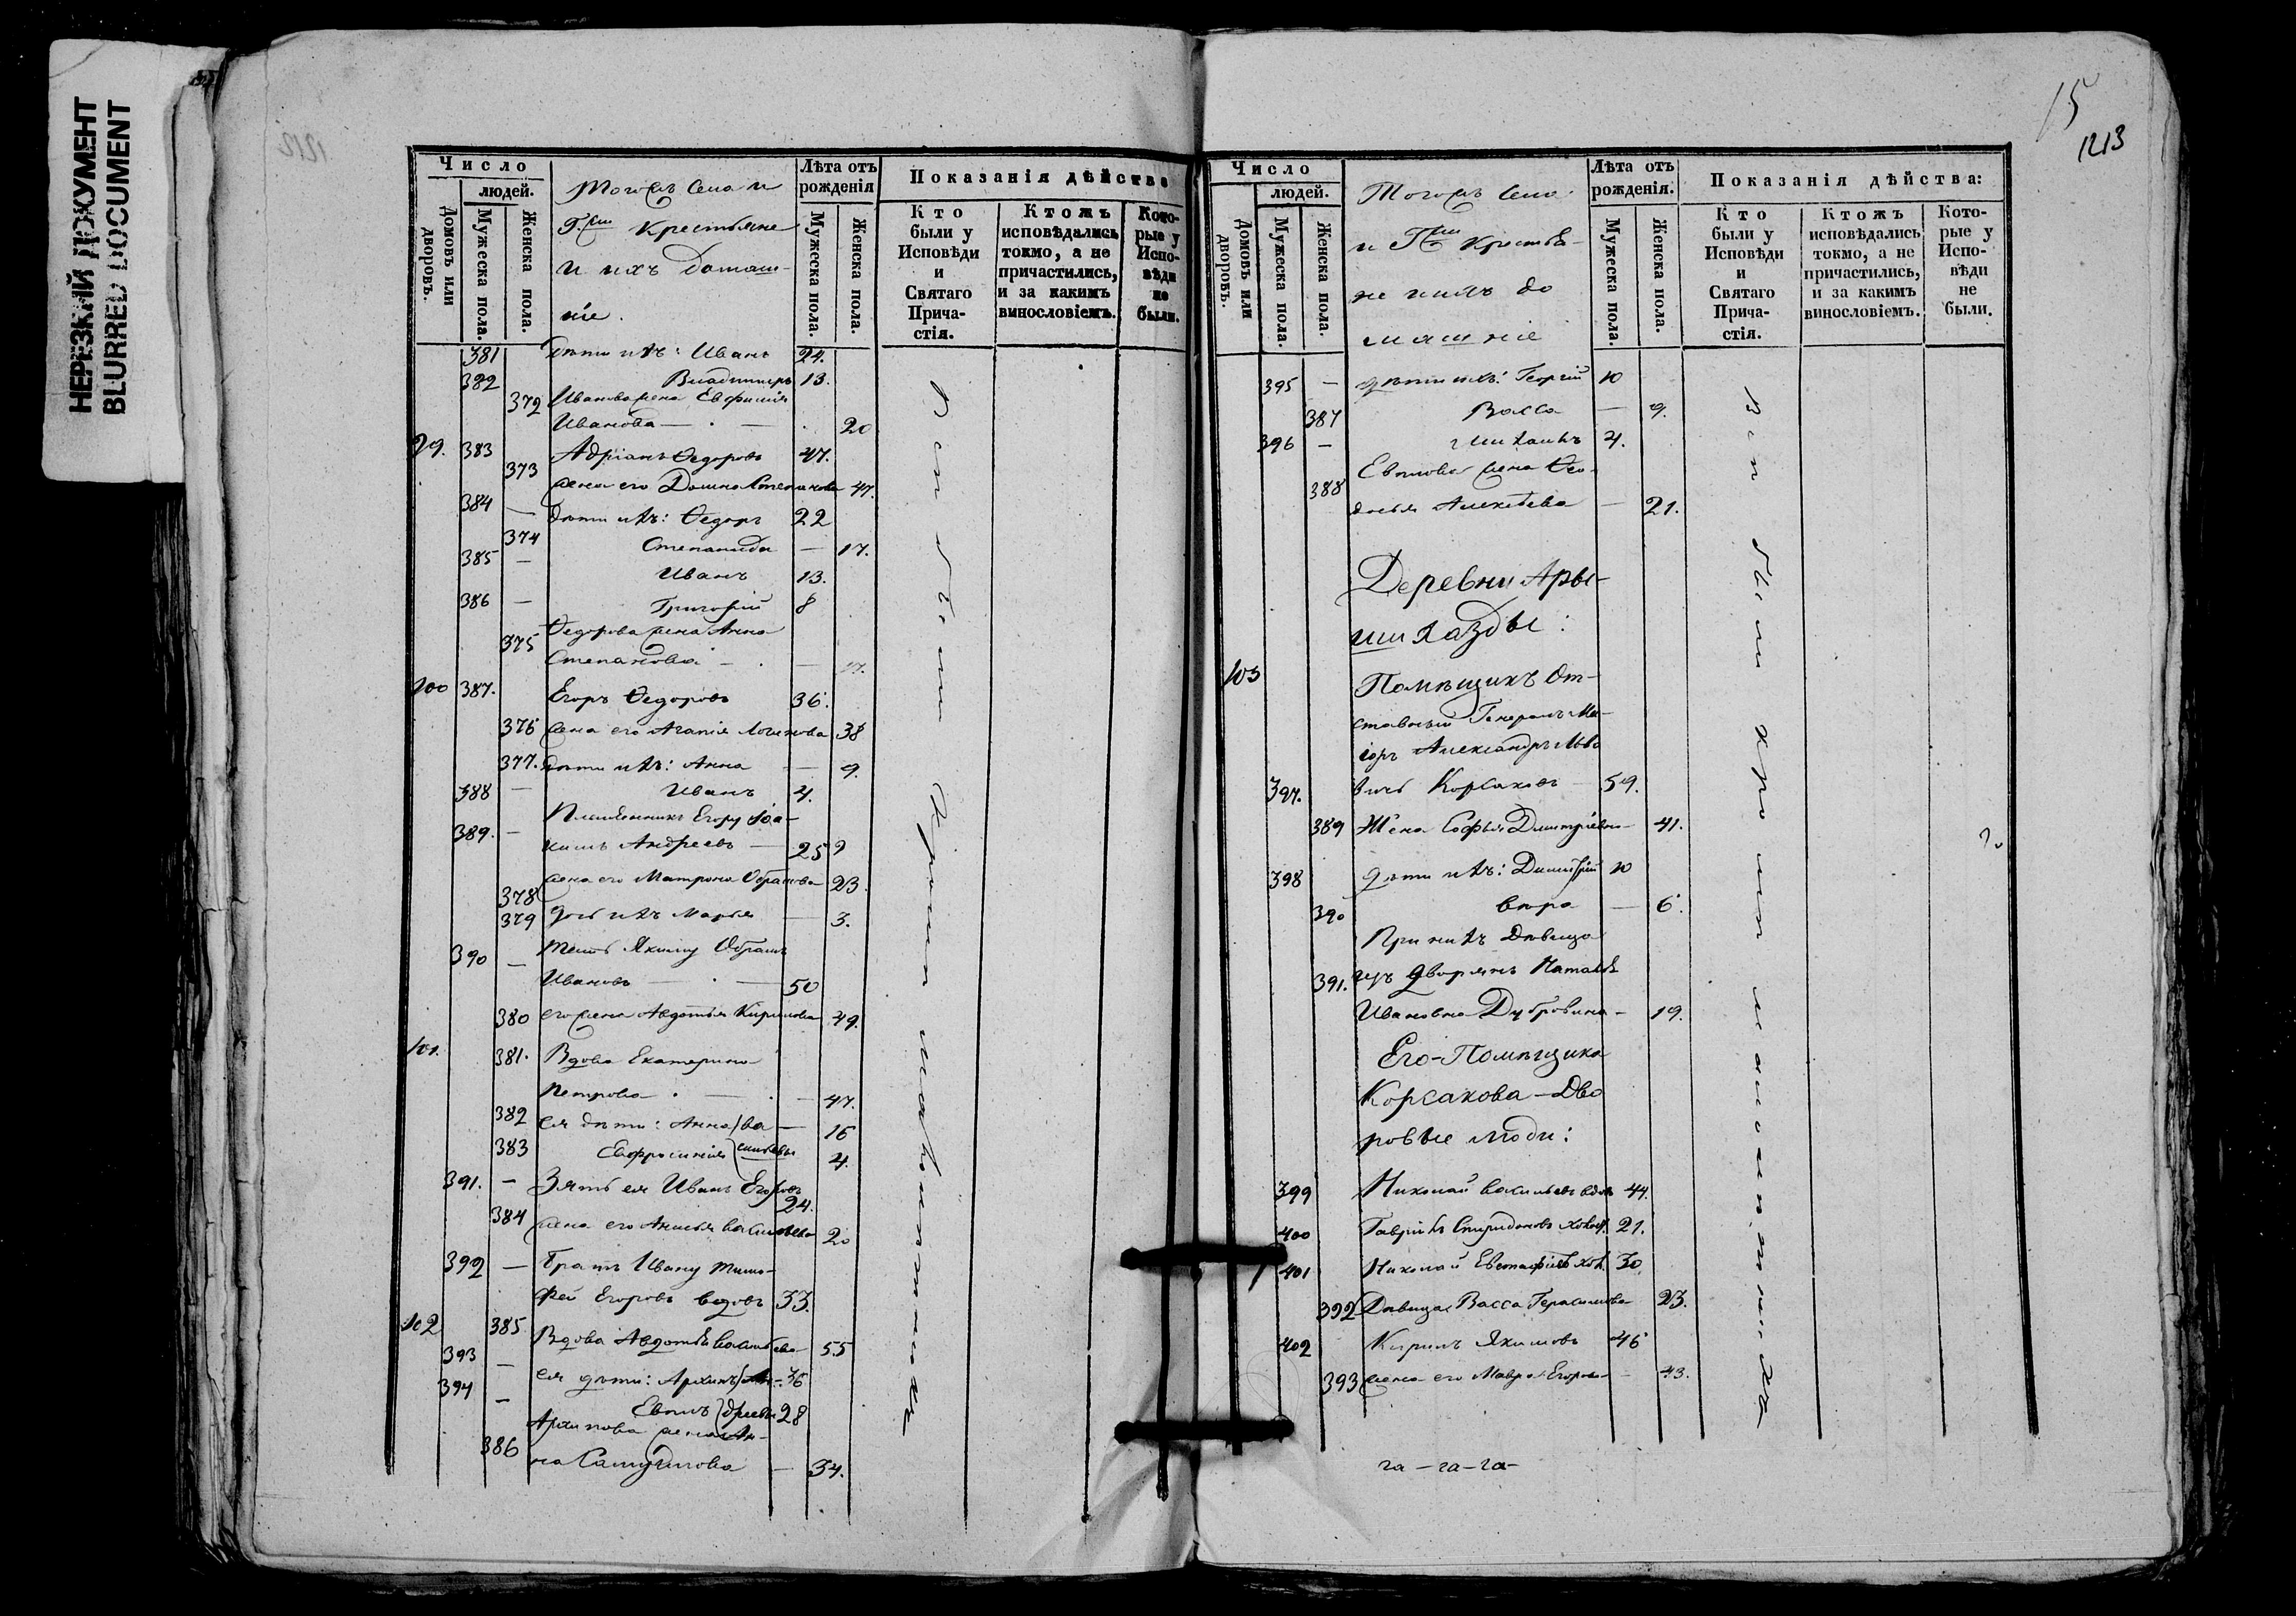 НЕРЕЗКИЙ ДОКУМЕНТ
BLURRED DOCUMENT
15
1213
Число
людей.
Домовъ или дворовъ.
Мужеска пола.
Женска пола.
Тогожъ Села и
Г.ски Крестьяне
и ихъ домаш-
ніе.
Лѣта отъ рожденія
Мужеска пола.
Женска пола.
Показанія дѣйства
Кто были у Исповѣди и Святаго Прича-стія.
Ктожъ исповѣдались токмо, а не причастились, и за какимъ винословіемъ.
Кото-рые у Испо-вѣди не были.
381 дѣти ихъ: Иванъ 24.
382 Владимиръ 13.
372 Иванова жена Евфимія
Иванова — 20
99. 383 Адріанъ Ѳедоровъ 47.
373 жена его Домна Степанова 47.
384 — дѣти ихъ: Ѳедоръ 22
374 Степанида — 17.
385 — Иванъ 13.
386 — Григорій 8
375 Ѳедорова жена Анна
Степанова —
100 387. Егоръ Ѳедоровъ 36.
376 жена его Агапія Логинова 38
377. дѣти ихъ: Анна — 9.
388 — Иванъ 4.
389. — Племянникъ Егору Іоа-
кимъ Андреевъ — 25
378 жена его Матрона Обрамова 23.
379 дочь ихъ Марья — 3.
390 — тесть Якиму Обрамъ
Ивановъ — 50
380 его жена Авдотья Кирилова 49.
101. 381. Вдова Екатерина
Петрова — 47.
382 ея дѣти: Анна Ва- — 16
383 Евфросинія сильевы 4.
391. — Зять ея Иванъ Егоровъ
24.
384 жена его Анисья Васильева 20
392 — Братъ Ивану Тимо-
фей Егоровъ вдовъ 33.
102 385 Вдова Авдотья Васильева 55
393 — ея дѣти: Архипъ Ан- 36
394 — Евтихъ дреевы 28
386 Архипова жена Ан-
на Самуилова — 34.
Всѣ были кромѣ малолѣтнихъ
Число
людей.
Домовъ или дворовъ.
Мужеска пола.
Женска пола.
Тогожъ Села
и Г.ски Крестья-
не и ихъ до
машніе
Лѣта отъ рожденія.
Мужеска пола.
Женска пола.
Показанія дѣйства:
Кто были у Исповѣди и Святаго Прича-стія.
Ктожъ исповѣдались токмо, а не причастились, и за какимъ винословіемъ.
Кото-рые у Испо-вѣди не были.
395 — дѣти ихъ: Георгій 10
387 Васса — 9.
396 — Михаилъ 4.
388 жена Ѳео-
досья Алексѣева — 21.
Деревни Ары-
шхазды:
103 Помѣщикъ От-
ставный Генералъ Ма-
іоръ Александръ Льво
397. вичъ Корсаковъ — 59.
389 Жена Софья Димитріевна — 41.
398 дѣти ихъ: Димитрій 10
390 Вѣра — 6.
При нихъ Дѣвица
391. изъ дворянъ Наталья
Ивановна Дубровина — 19.
Его-Помѣщика
Корсакова — Дво
ровые люди:
399 Николай Васильевъ вдовъ 44.
400 Гавріилъ Спиридоновъ холост. 21.
401 Николай Евстафіевъ хол. 30.
392 Дѣвица Васса Герасимова 23.
402 Кирилъ Якимовъ 46
393 жена его Мавра Егорова — 43.
Всѣ были кромѣ малолѣтнихъ
га — га — га —